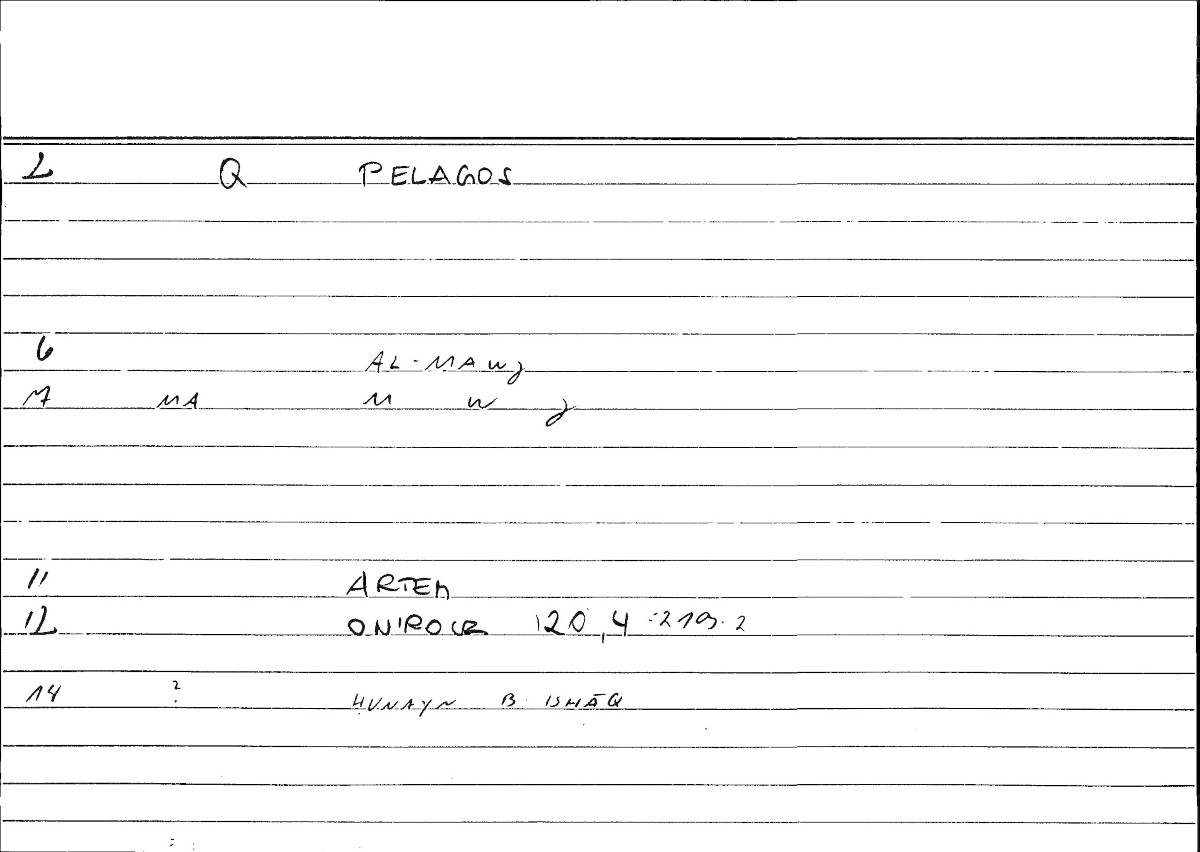 2 Q PELAGOS
6 AL-MAWJ
7 MA M W J
11 ARTEM
12 ONIROCR 120,4 = 219.2
14 ? HUNAYN B ISHĀQ